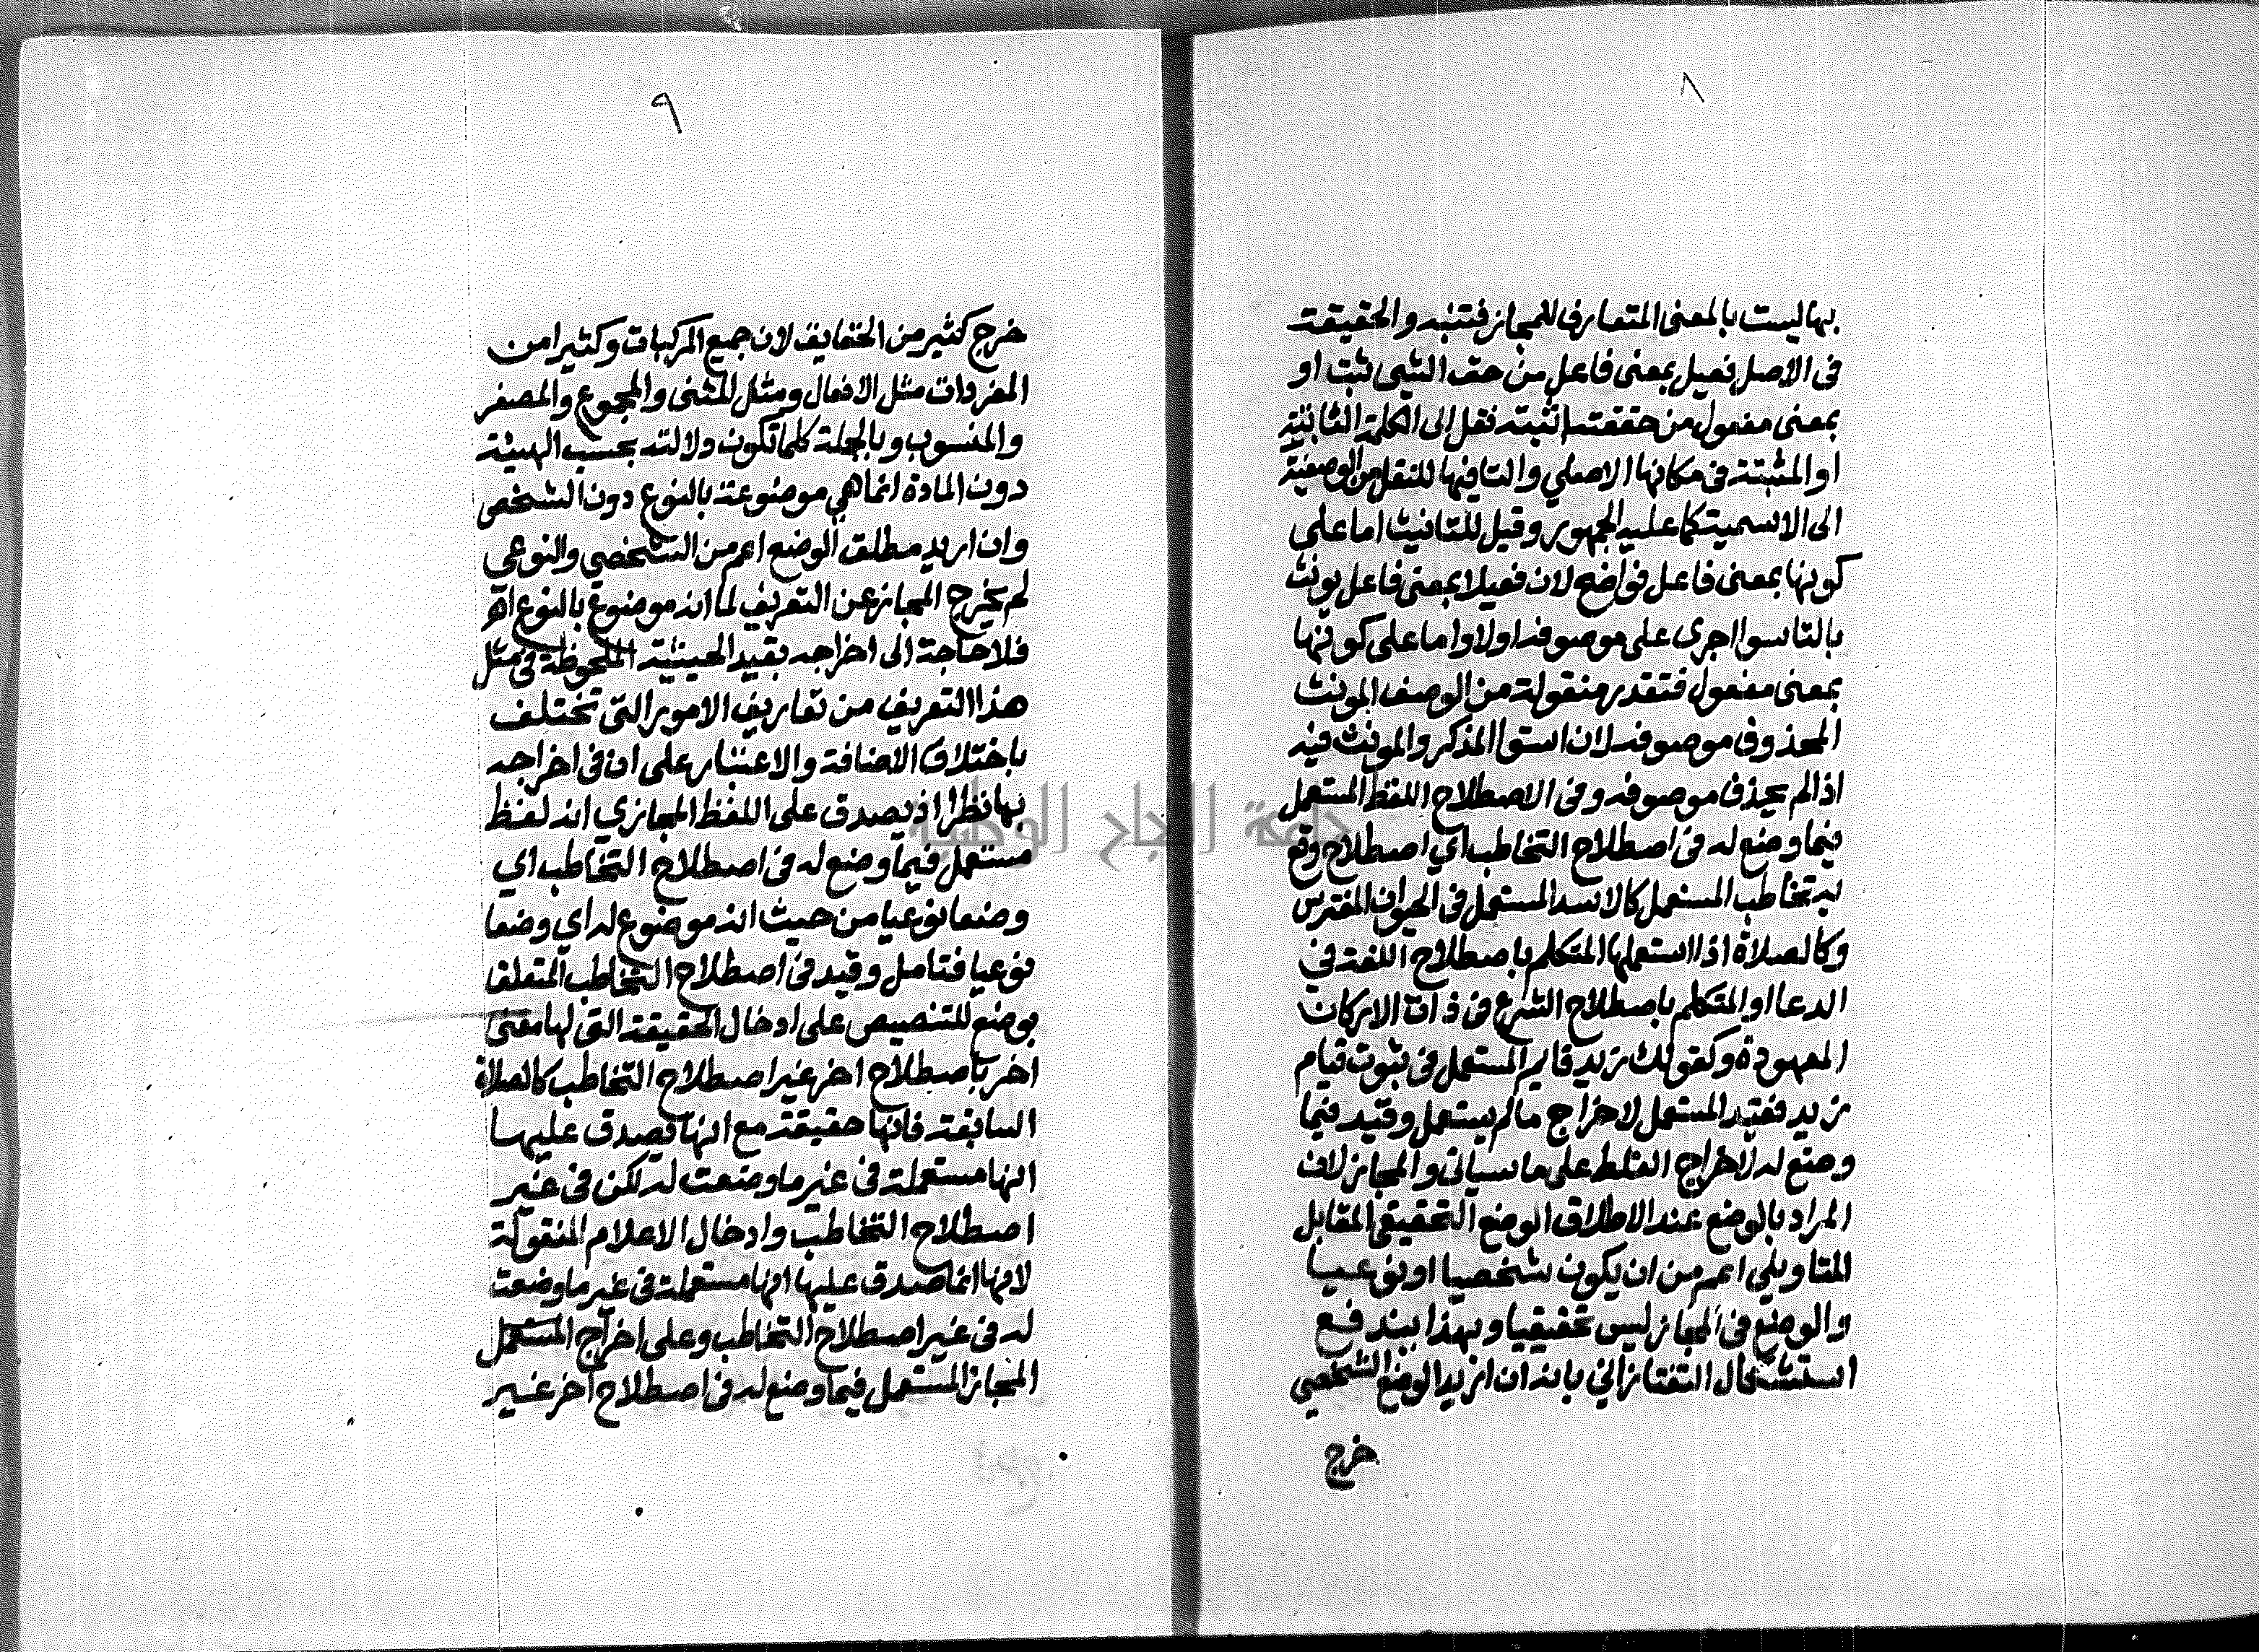 ٨
بها ليست بالمعنى المتعارف للمجاز فتنبه والحقيقت
فى الاصل فعيل بمعنى فاعل من حق الشي ثبت او
بمعنى مفعول من حققته اثبته نقل الى الكلمة الثابتة
او المثبتة فى مكانها الاصلي والتا فيها للنقل من الوصفية
الى الاسمية كما عليه الجمهور وقيل للتانيث اما على
كونها بمعنى فاعل فواضح لان فعيلا بمعنى فاعل يونث
بالتا سوا اجرى على موصوفه اولا واما على كونها
بمعنى مفعول فتقدر منقولة من الوصف المونث
المحذوف موصوفه لان استوا المذكر والمونث فيه
اذا لم يحذف موصوفه وفى الاصطلاح اللفظ المستعمل
فيما وضع له فى اصطلاح التخاطب اي اصطلاح وقع
به تخاطب المستعمل كالاسد المستعمل فى الحيوان المفترس
وكالصلاة اذا استعملها المتكلم باصطلاح اللغة في
الدعا او المتكلم باصطلاح الشرع فى ذات الاركان
المعهودة وكقولك زيد قايم المستعمل فى ثبوت قيام
زيد فقيد المستعمل لاخراج ما لم يستعمل وقيد فيما
وضع له لاخراج الغلط على ما سياتى والمجاز لان
المراد بالوضع عند الاطلاق الوضع التحقيقي المقابل
للتاويلي اعم من ان يكون شخصيا او نوعيا
والوضع فى المجاز ليس تحقيقيا وبهذا يندفع
استشكال التفتازاني بانه ان اريد الوضع الشخصي
خرج
٩
خرج كثير من الحقايق لان جميع المركبات وكثيرا من
المفردات مثل الافعال ومثل المثنى والمجموع والمصغر
والمنسوب وبالجملة كلما تكون دلالته بحسب الهيئة
دون المادة انما هي موضوعة بالنوع دون الشخص
وان اريد مطلق الوضع اعم من الشخصي والنوعي
لم يخرج المجاز عن التعريف لما انه موضوع بالنوع اه
فلا حاجة الى اخراجه بقيد الحيثية الملحوظة فى مثل
هذا التعريف من تعاريف الامور التى تختلف
باختلاف الاضافة والاعتبار على ان فى اخراجه
بها نظرا اذ يصدق على اللفظ المجازي انه لفظ
مستعمل فيما وضع له فى اصطلاح التخاطب اي
وضعا نوعيا من حيث انه موضوع له اي وضعا
نوعيا فتامل وقيد فى اصطلاح التخاطب المتعلق
بوضع للتنصيص على ادخال الحقيقة التى لها معنى
اخر باصطلاح اخر غير اصطلاح التخاطب كالصلاة
السابقة فانها حقيقة مع انها تصدق عليها
انها مستعملة فى غير ما وضعت له لكن فى غير
اصطلاح التخاطب وادخال الاعلام المنقولة
لانها انما صدق عليها انها مستعملة فى غير ما وضعت
له فى غير اصطلاح التخاطب وعلى اخراج المستعمل
المجاز المستعمل فيما وضع له فى اصطلاح اخر غير
جامعة النجاح الوطنية